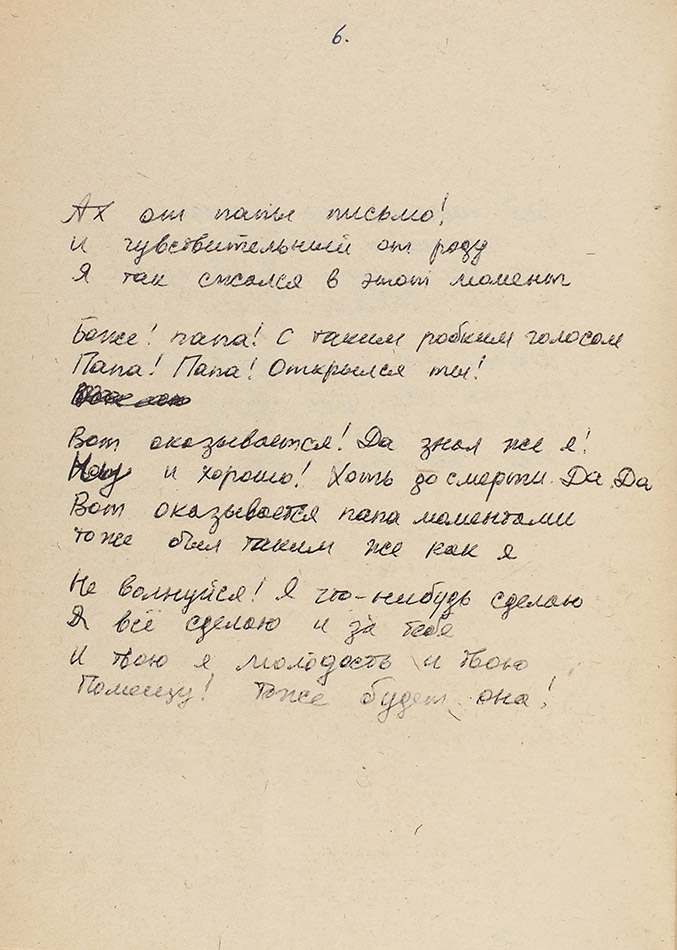 6.
Ах от папы письмо!
И чувствительный от роду
Я так сжался в этот момент
Боже! папа! С таким робким голосом
Папа! Папа! Открылся ты!
Вот оказывается! Да знал же я!
Ну и хорошо! Хоть до смерти. Да. Да
Вот оказывается папа моментами
тоже был таким же как я
Не волнуйся! Я что-нибудь сделаю
Я всё сделаю и за тебя
И твою я молодость и твою
тоже будет она!